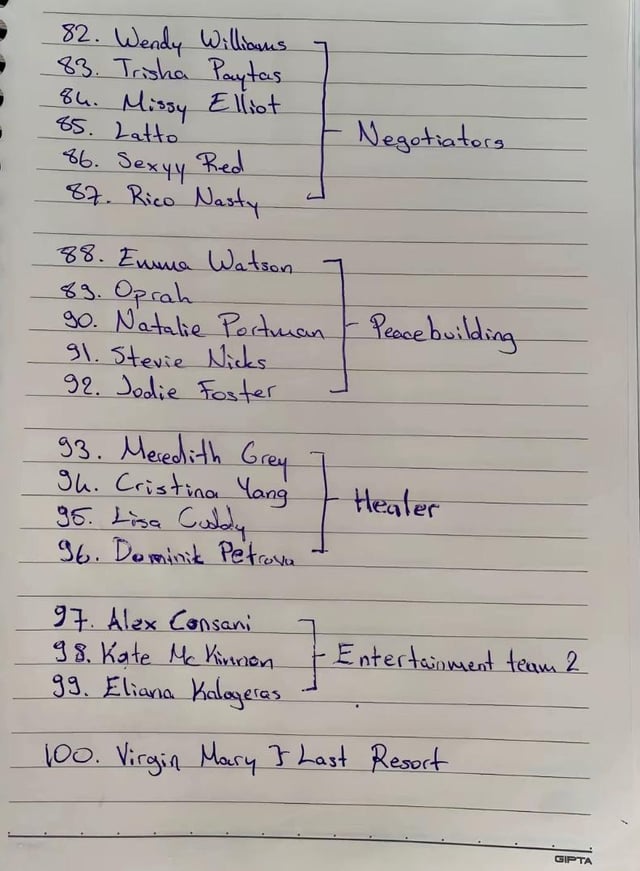 82. Wendy Williams
83. Trisha Paytas
84. Missy Elliot
85. Latto
86. Sexyy Red
87. Rico Nasty
Negotiators
88. Emma Watson
89. Oprah
90. Natalie Portman
91. Stevie Nicks
92. Jodie Foster
Peacebuilding
93. Meredith Grey
94. Cristina Yang
95. Lisa Cuddy
96. Dominik Petrova
Healer
97. Alex Consani
98. Kate McKinnon
99. Eliana Kalogeras
Entertainment team 2
100. Virgin Mary } Last Resort
GIPTA